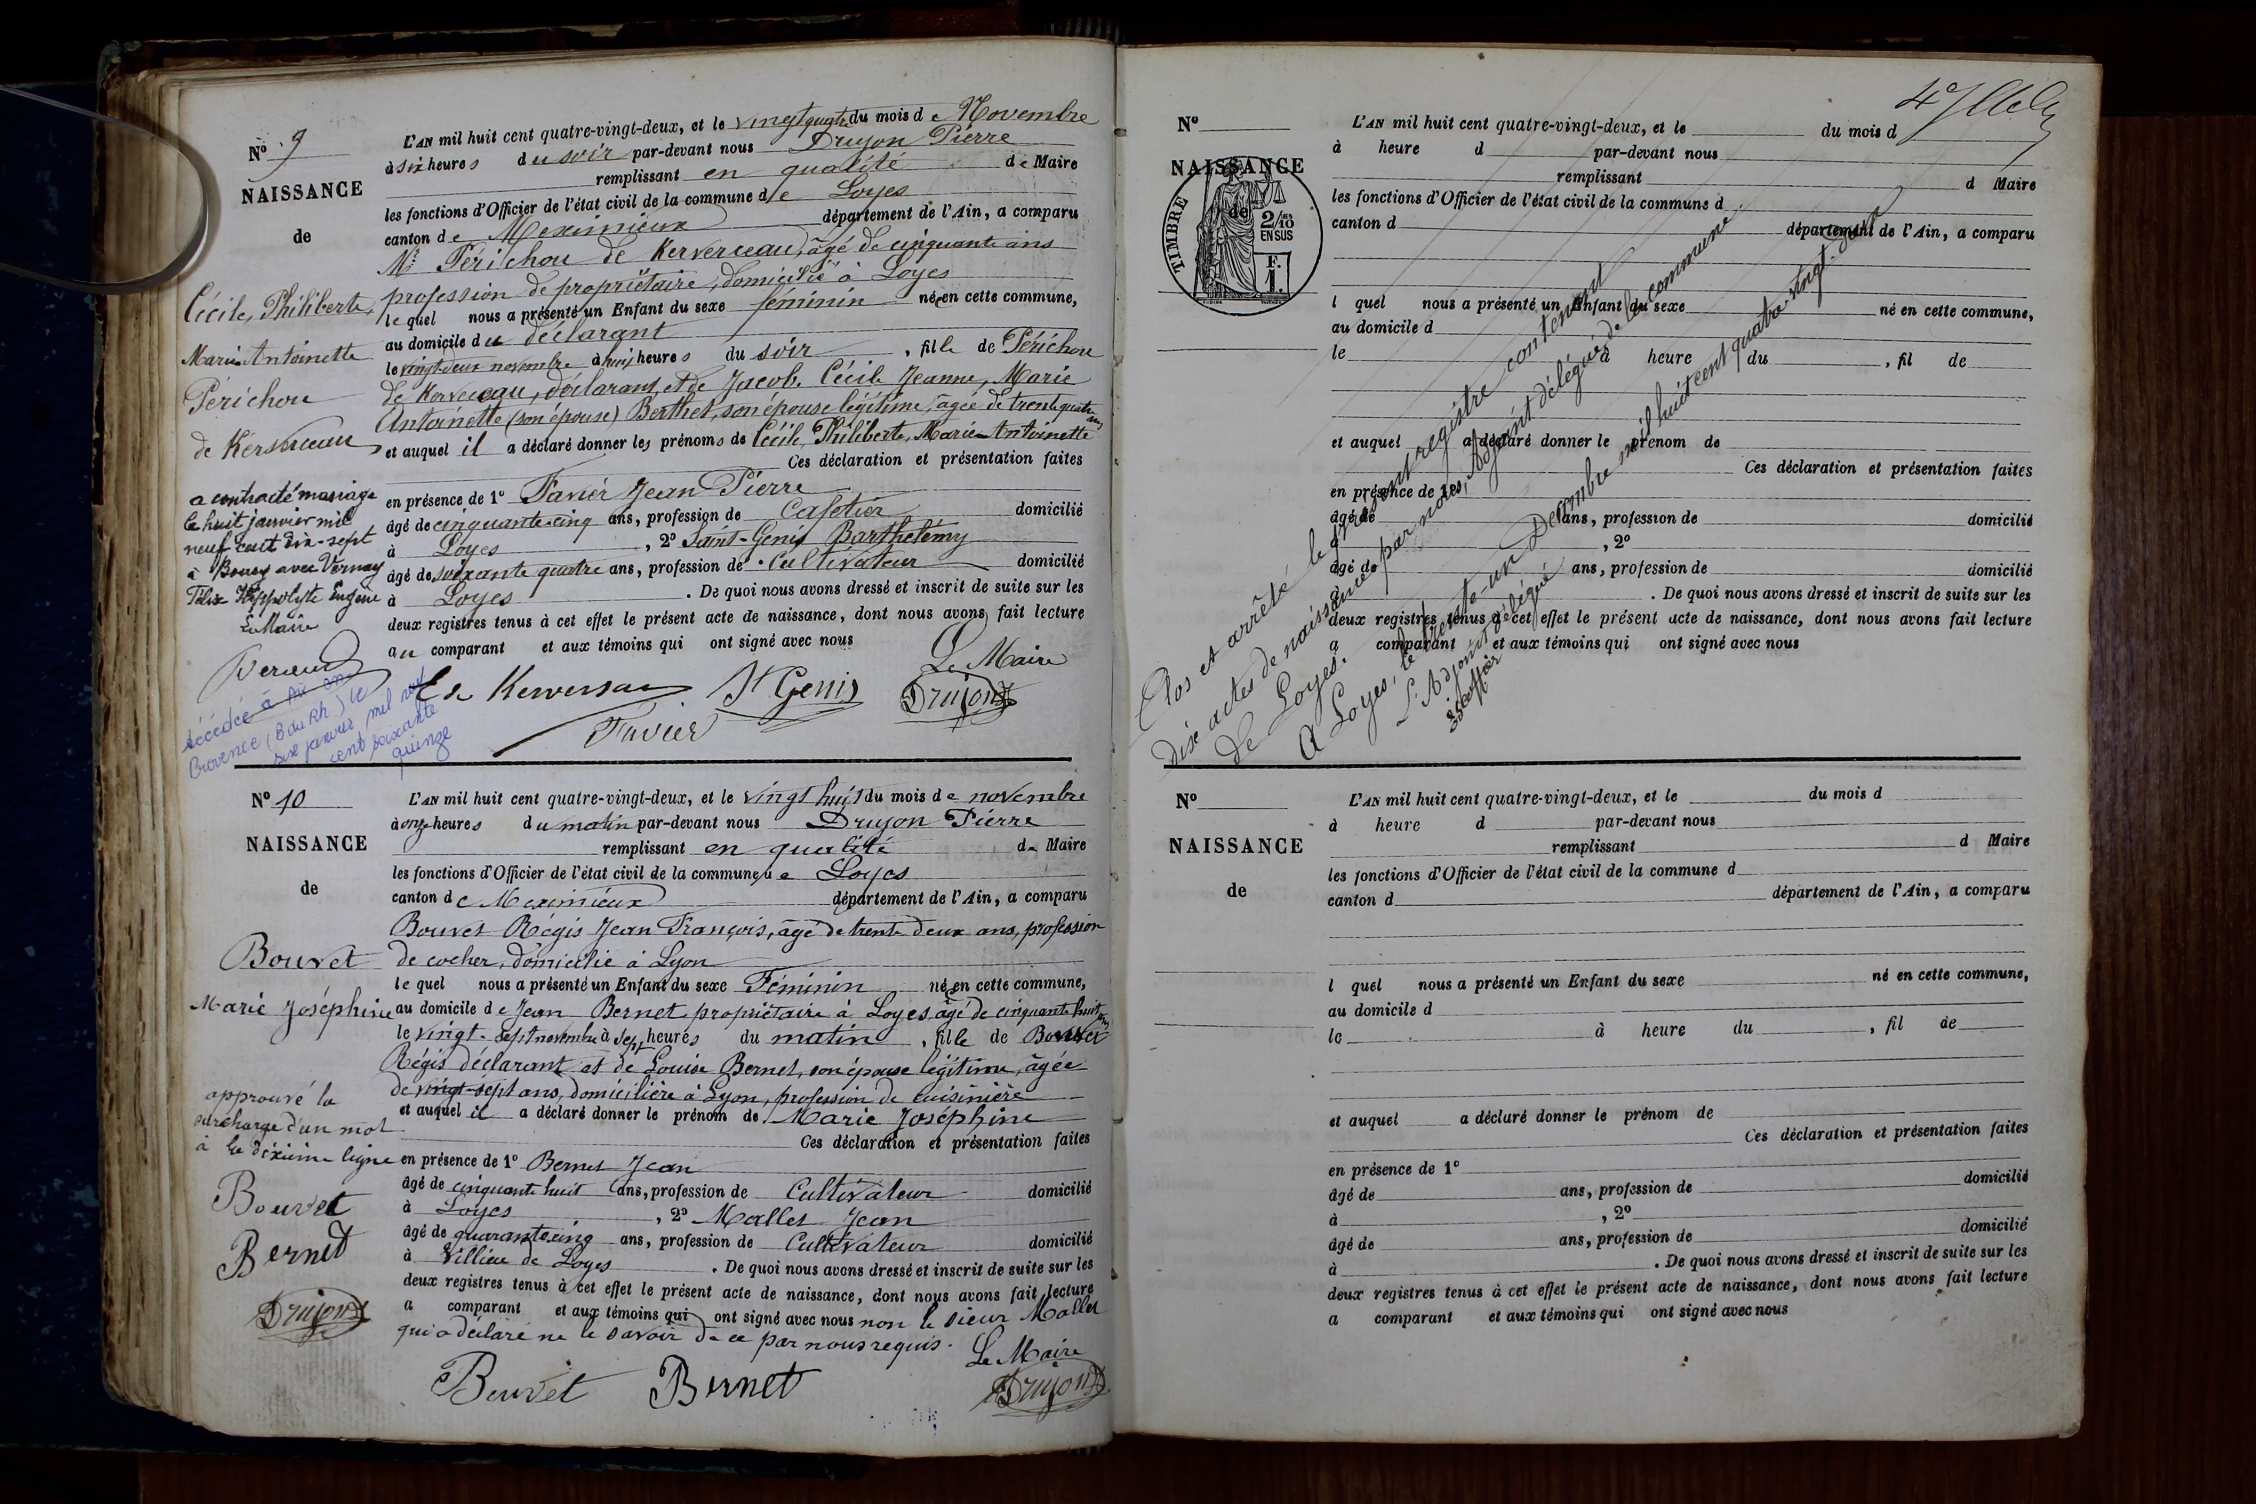 Nº 9
NAISSANCE
de
Cécile, Philiberte,
Marie Antoinette
Périchou
de Kerverceau
a contracté mariage
le huit janvier mil
neuf cent dix-sept
à Bourg avec Vernay
Félix Hippolyte Eugène
Le Maire
décédée à Aix en
Provence (B du Rh) le
six janvier mil neuf
cent soixante
quinze
L'AN mil huit cent quatre-vingt-deux, et le vingt quatre du mois de Novembre
à six heures du soir par-devant nous Drujon Pierre
remplissant en qualité de Maire
les fonctions d'Officier de l'état civil de la commune de Loyes
canton de Meximieux département de l'Ain, a comparu
Mr Périchou de Kerverceau, âgé de cinquante ans
profession de propriétaire, domicilié à Loyes
le quel nous a présenté un Enfant du sexe féminin née en cette commune,
au domicile du déclarant
le vingt-deux novembre à huit heures du soir, fille de Périchou
de Kerverceau, déclarant et de Jacob Cécile Jeanne, Marie
Antoinette (son épouse) Berthet, son épouse légitime, âgée de trente quatre ans
et auquel il a déclaré donner les prénoms de Cécile, Philiberte, Marie-Antoinette
Ces déclaration et présentation faites
en présence de 1º Favier Jean Pierre
âgé de cinquante-cinq ans, profession de Cafetier domicilié
à Loyes, 2º Saint-Genis Barthelémy
âgé de soixante quatre ans, profession de Cultivateur domicilié
à Loyes. De quoi nous avons dressé et inscrit de suite sur les
deux registres tenus à cet effet le présent acte de naissance, dont nous avons fait lecture
au comparant et aux témoins qui ont signé avec nous
Le Maire
E de Kerversau St Genis Drujon
Favier
Nº 10
NAISSANCE
de
Bouvet
Marie Joséphine
approuvé la
surcharge d'un mot
à la dixième ligne
Bouvet
Bernet
Drujon
L'AN mil huit cent quatre-vingt-deux, et le vingt huit du mois de novembre
à onze heures du matin par-devant nous Drujon Pierre
remplissant en qualité de Maire
les fonctions d'Officier de l'état civil de la commune de Loyes
canton de Meximieux département de l'Ain, a comparu
Bouvet Régis Jean François, âgé de trente deux ans, profession
de cocher, domicilié à Lyon
le quel nous a présenté un Enfant du sexe Féminin née en cette commune,
au domicile de Jean Bernet propriétaire à Loyes âgé de cinquante huit ans
le vingt-sept novembre à sept heures du matin, fille de Bouvet
Régis déclarant et de Louise Bernet, son épouse légitime, âgée
de vingt-sept ans, domicilière à Lyon, profession de cuisinière
et auquel il a déclaré donner le prénom de Marie Joséphine
Ces déclaration et présentation faites
en présence de 1º Bernet Jean
âgé de cinquante huit ans, profession de Cultivateur domicilié
à Loyes, 2º Mallet Jean
âgé de quarante cinq ans, profession de Cultivateur domicilié
à Villieu de Loyes. De quoi nous avons dressé et inscrit de suite sur les
deux registres tenus à cet effet le présent acte de naissance, dont nous avons fait lecture
a comparant et aux témoins qui ont signé avec nous non le sieur Mallet
qui a déclaré ne le savoir de ce par nous requis.
Le Maire
Bouvet Bernet Drujon
Nº
NAISSANCE
de
TIMBRE
2/10 EN SUS
F. 1.
L'AN mil huit cent quatre-vingt-deux, et le du mois d
à heure d par-devant nous
remplissant d Maire
les fonctions d'Officier de l'état civil de la commune d
canton d département de l'Ain, a comparu
l quel nous a présenté un Enfant du sexe né en cette commune,
au domicile d
le à heure du , fil de
et auquel a déclaré donner le prénom de
Ces déclaration et présentation faites
en présence de 1º
âgé de ans, profession de domicilié
à , 2º
âgé de ans, profession de domicilié
à . De quoi nous avons dressé et inscrit de suite sur les
deux registres tenus à cet effet le présent acte de naissance, dont nous avons fait lecture
a comparant et aux témoins qui ont signé avec nous
Clos et arrêté le présent registre contenant
dix actes de naissance par nous, Adjoint délégué de la commune
de Loyes.
A Loyes, le trente-un Décembre mil huit cent quatre vingt-deux
L'Adjoint délégué
Nº
NAISSANCE
de
L'AN mil huit cent quatre-vingt-deux, et le du mois d
à heure d par-devant nous
remplissant d Maire
les fonctions d'Officier de l'état civil de la commune d
canton d département de l'Ain, a comparu
l quel nous a présenté un Enfant du sexe né en cette commune,
au domicile d
le à heure du , fil de
et auquel a déclaré donner le prénom de
Ces déclaration et présentation faites
en présence de 1º
âgé de ans, profession de domicilié
à , 2º
âgé de ans, profession de domicilié
à . De quoi nous avons dressé et inscrit de suite sur les
deux registres tenus à cet effet le présent acte de naissance, dont nous avons fait lecture
a comparant et aux témoins qui ont signé avec nous